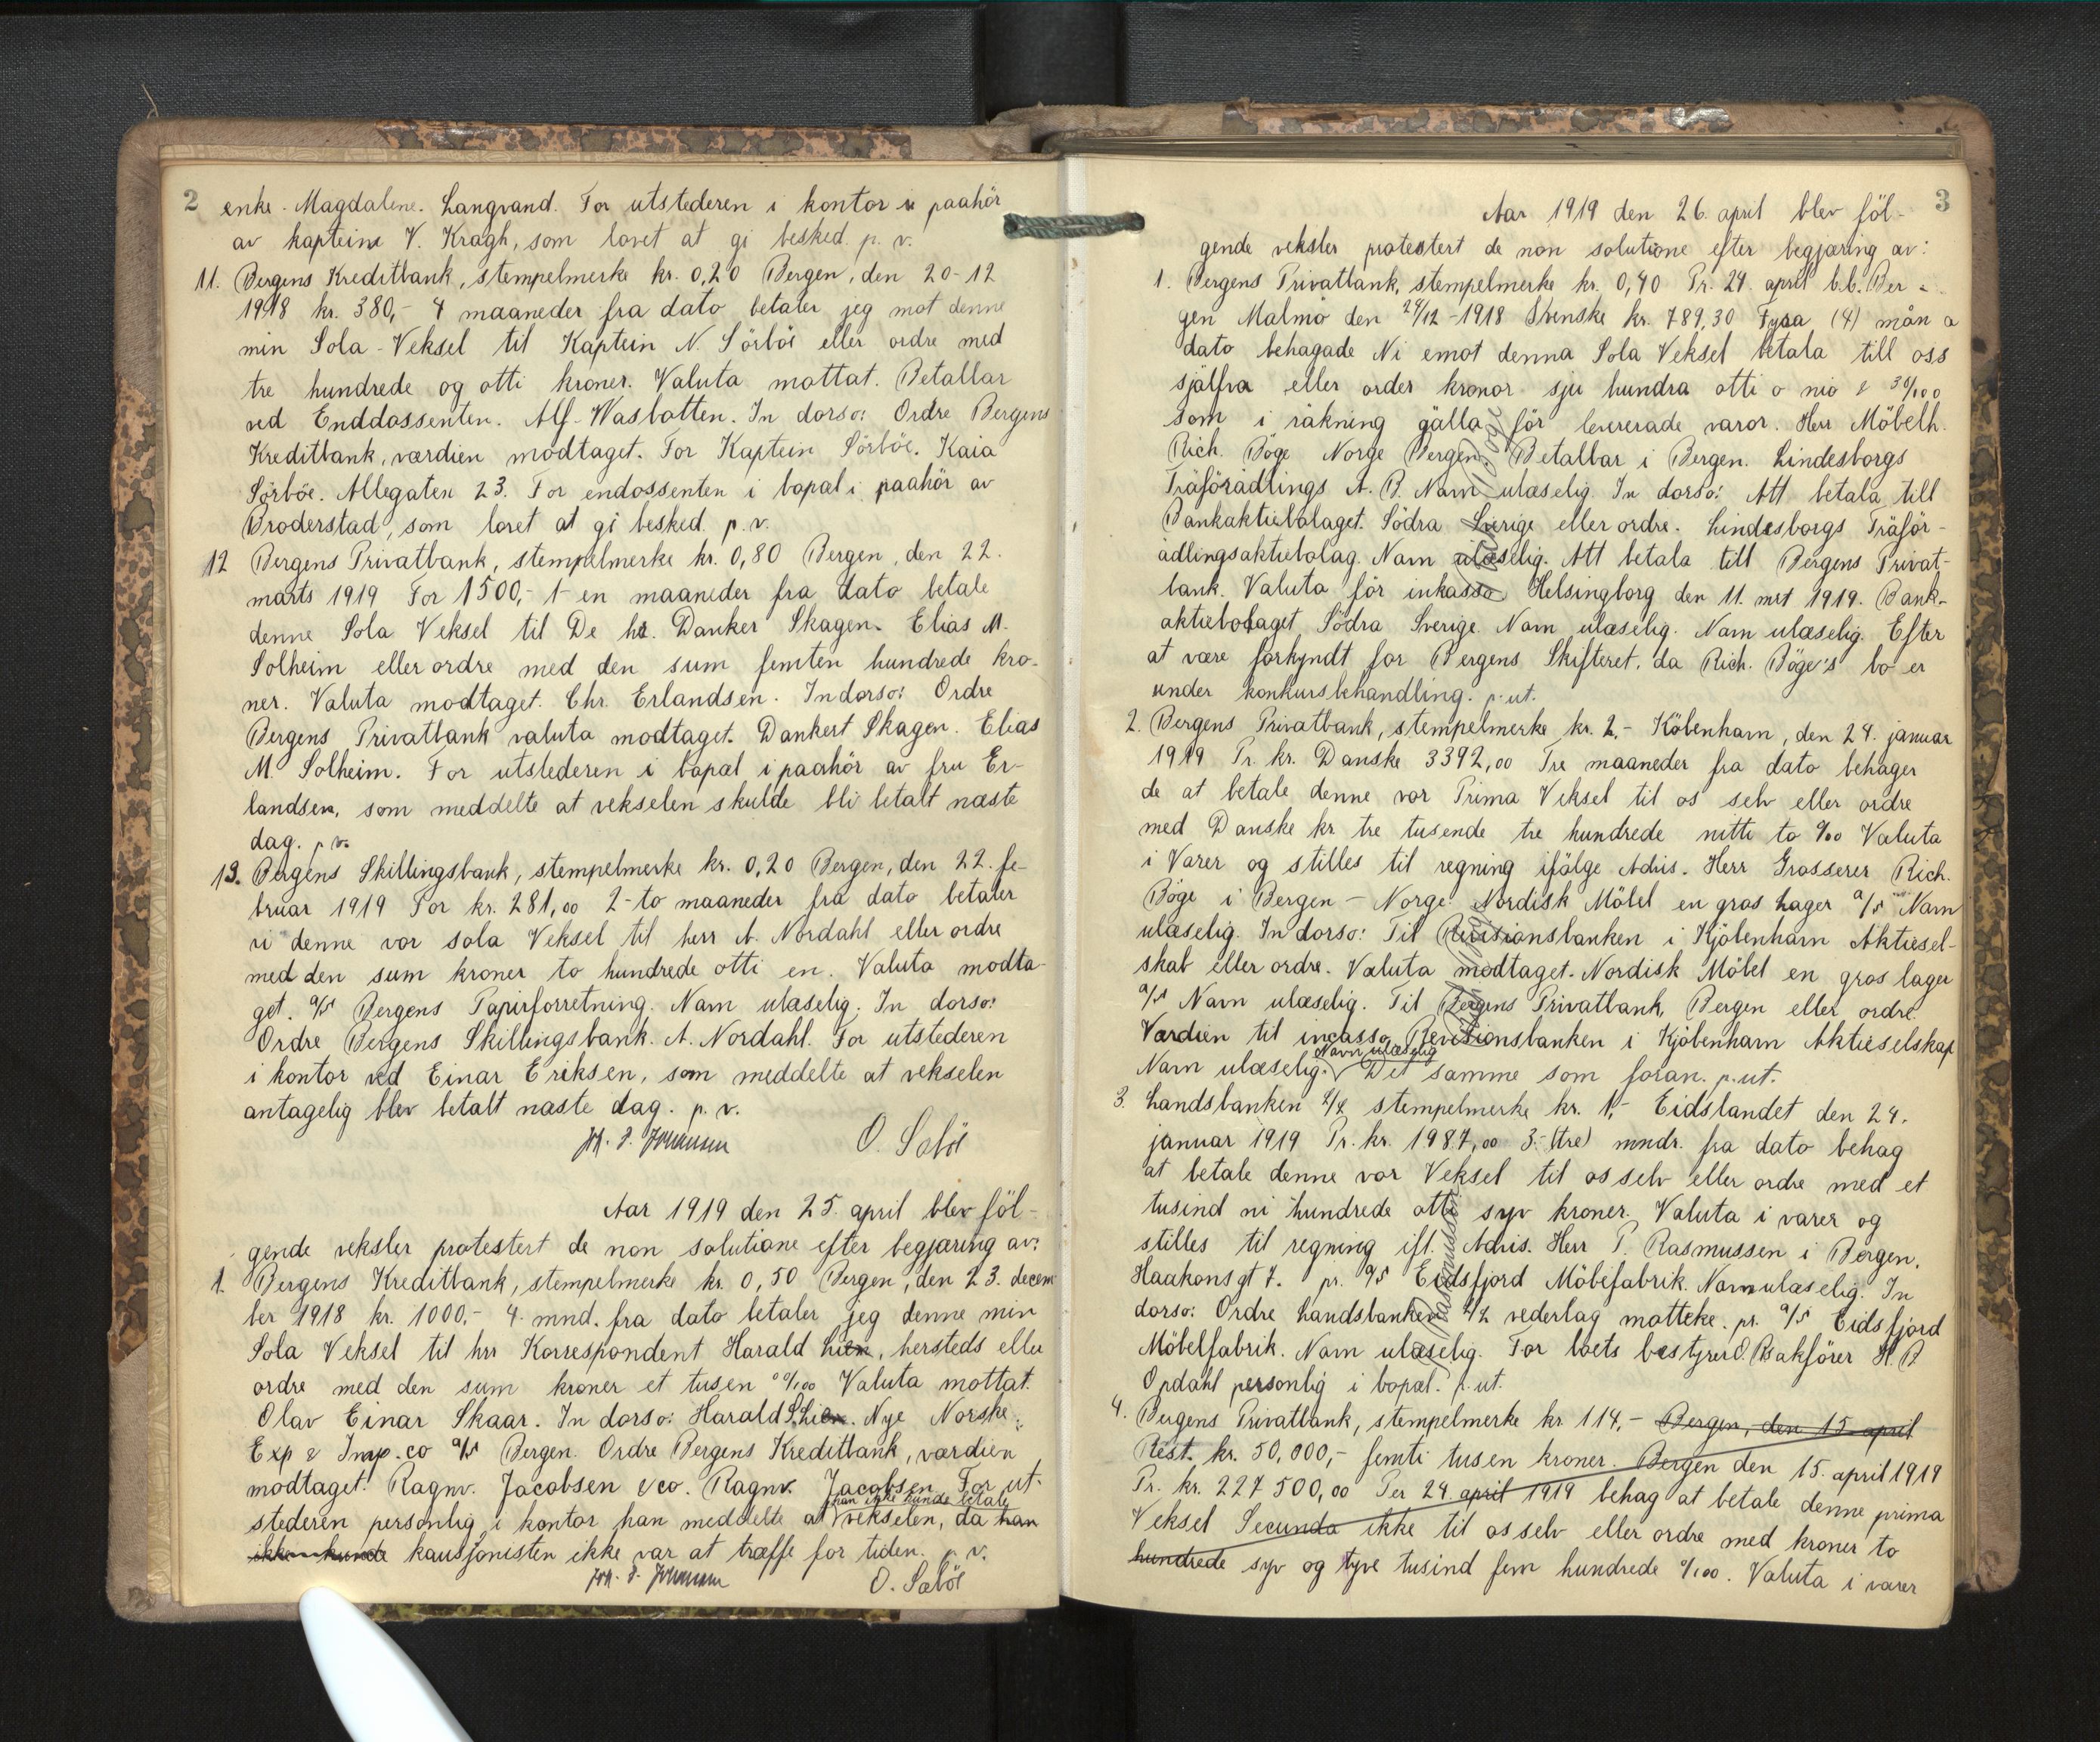 2
enke. Magdalene. Langvand. For utstederen i kontor i paahör
av kaptein V. Kragh, som lovet at gi besked. p. v.
11. Bergens Kreditbank, stempelmerke kr. 0,20 Bergen, den 20-12
1918 kr. 380,- 4 maaneder fra dato betaler jeg mot denne
min Sola-Veksel til Kaptein N. Sörböe eller ordre med
tre hundrede og otti kroner. Valuta mottat. Betalbar
ved Enddossenten. Alf. Wasbotten. In dorso: Ordre Bergens
Kreditbank, værdien modtaget. For Kaptein Sörböe. Kaia
Sörböe. Allegaten 23. For endossenten i bopæl i paahör av
Broderstad, som lovet at gi besked. p. v.
12 Bergens Privatbank, stempelmerke kr. 0,80 Bergen, den 22.
marts 1919 For 1500,- 1- en maaneder fra dato betale
denne Sola Veksel til De hr. Danker Skagen. Elias M.
Solheim eller ordre med den sum femten hundrede kro-
ner. Valuta modtaget. Chr. Erlandsen. In dorso: Ordre
Bergens Privatbank valuta modtaget. Dankert Skagen. Elias
M. Solheim. For utstederen i bopæl i paahör av fru Er-
landsen, som meddelte at vekselen skulde bli betalt næste
dag. p. v.
13. Bergens Skillingsbank, stempelmerke kr. 0,20 Bergen, den 22. fe-
bruar 1919 For kr. 281,00 2-to maaneder fra dato betaler
vi denne vor sola Veksel til herr A. Nordahl eller ordre
med den sum kroner to hundrede otti en. Valuta modta-
get. a/s Bergens Papirforretning. Navn ulæselig. In dorso:
Ordre Bergens Skillingsbank. A. Nordahl. For utstederen
i kontor ved Einar Eriksen, som meddelte at vekselen
antagelig blev betalt næste dag. p. v.
Joh. S. Johansen O. Sæböe
Aar 1919 den 25. april blev föl-
gende veksler protestert de non solutione efter begjæring av:
1. Bergens Kreditbank, stempelmerke kr. 0,50 Bergen, den 23. decem
ber 1918 kr. 1000.- 4. mnd. fra dato betaler jeg denne min
Sola Veksel til hrr Korrespondent Harald Lien, hersteds eller
ordre med den sum kroner et tusen 00/100 Valuta mottat.
Olav Einar Skaar. In dorso: Harald S. Lien. Nye Norske
Exp & Imp. co a/s Bergen. Ordre Bergens Kreditbank, værdien
modtaget. Ragnv. Jacobsen & co. Ragnv. Jacobsen. For ut-
han ikke kunde betale
stederen personlig i kontor han meddelte at vekselen, da han
ikke kunde kausjonisten ikke var at træffe for tiden. p. v.
Joh. S. Johansen O. Sæböe
3
Aar 1919 den 26. april blev föl-
gende veksler protestert de non solutione efter begjæring av:
1. Bergens Privatbank, stempelmerke kr. 0,40 Pr. 24. april b.b. Ber-
gen Malmö den 24/12-1918 Svenske kr. 789,30 Fyra (4) mån a
dato behagade Ni emot denna Sola Veksel betala till oss
själfva eller order kronor sju hundra otti o nio & 30/100
som i räkning gälla för levererade varor. Herr Möbelh.
Rich. Böge Norge Bergen. Betalbar i Bergen. Lindesborgs
Träförädlings A. B. Navn ulæselig. In dorso: Att betala till
Bankaktiebolaget. Södra Sverige eller ordre. Lindesborgs Träför-
ädlingsaktiebolag. Navn ulæselig. Att betala till Bergens Privat-
bank. Valuta för inkasso Helsingborg den 11. mrt 1919. Bank-
aktiebolaget Södra Sverige. Navn ulæselig. Navn ulæselig. Efter
at være forkyndt for Bergens Skifteret, da Rich. Böge's bo er
under konkursbehandling. p. ut.
2. Bergens Privatbank, stempelmerke kr. 2,- Köbenhavn, den 24. januar
1919 Pr. kr. Danske 3392,00 Tre maaneder fra dato behager
de at betale denne vor Prima Veksel til os selv eller ordre
med Danske kr tre tusende tre hundrede nitti to %00 Valuta
i Varer og stilles til regning ifölge Advis. Herr Grosserer Rich.
Böge i Bergen - Norge Nordisk Möbel en gros Lager a/s Navn
ulæselig. In dorso: Til Revisionsbanken i Kjöbenhavn Aktiesel-
skab eller ordre. Valuta modtaget. Nordisk Möbel en gros lager
a/s Navn ulæselig. Til Bergens Privatbank, Bergen eller ordre.
Værdien til incasso. Revisionsbanken i Kjöbenhavn Aktieselskap
Navn ulæselig
Navn ulæselig. Det samme som foran. p. ut.
3. Landsbanken A/L stempelmerke kr. 1,- Eidslandet den 24.
januar 1919 Pr. kr. 1987,00 3-(tre) mndr. fra dato behag
at betale denne vor Veksel til os selv eller ordre med et
tusind ni hundrede otti syv kroner. Valuta i varer og
stilles til regning ifl. Advis. Herr P. Rasmussen i Bergen.
Haakonsgt 7. pr. a/s Eidsfjord Möbefabrik. Navn ulæselig. In
dorso: Ordre Landsbanken A/L vederlag motteke. pr. a/s Eidsfjord
Möbelfabrik. Navn ulæselig. For boets bestyrer O. R sakförer H. B.
Opdahl personlig i bopæl. p. ut.
4. Bergens Privatbank, stempelmerke kr 114,- Bergen, den 15 april
Rest. kr. 50,000,- femti tusen kroner. Bergen den 15. april 1919
Pr. kr. 227 500,00 Per 24. april 1919 behag at betale denne prima
Veksel Secunda ikke til os selv eller ordre med kroner to
hundrede syv og tyve tusind fem hundrede 0/100. Valuta i varer